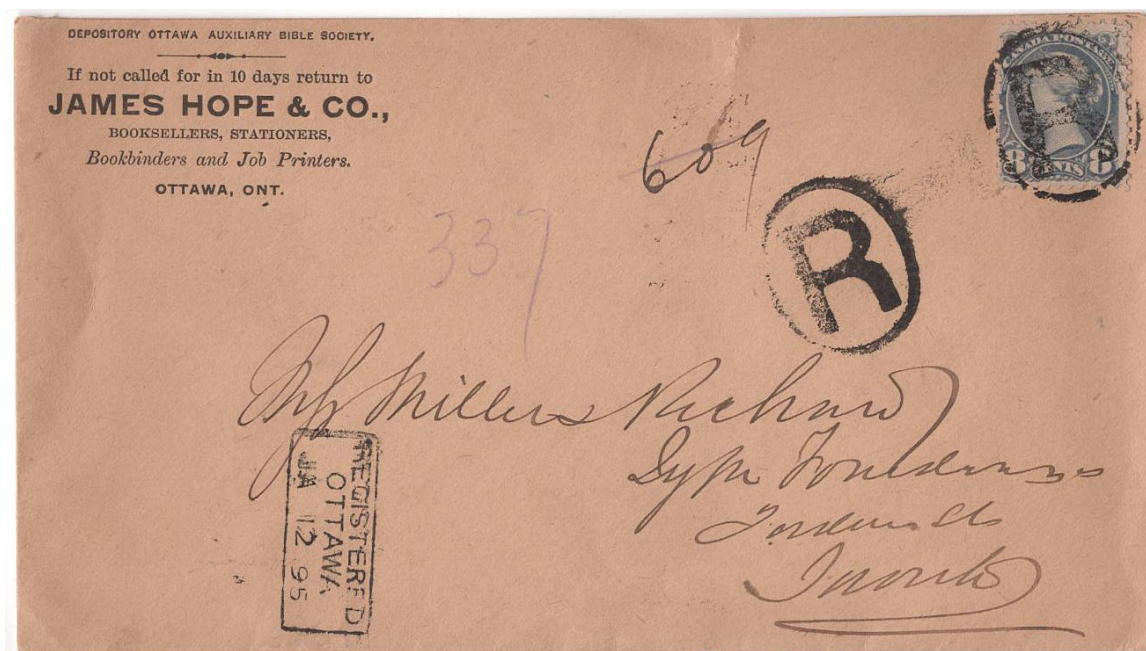 DEPOSITORY OTTAWA AUXILIARY BIBLE SOCIETY.
If not called for in 10 days return to
JAMES HOPE & CO.,
BOOKSELLERS, STATIONERS,
Bookbinders and Job Printers.
OTTAWA, ONT.
CANADA POSTAGE
8 CENTS 8
R
609
R
337
Millers Richard
Type Founders
Toronto
REGISTERED
OTTAWA
JA 12 95